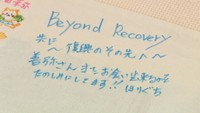 Beyond Recovery
共に
〜復興のその先へ〜
さん、またお会い出来るのを
たのしみにしてます!! ほりぐち